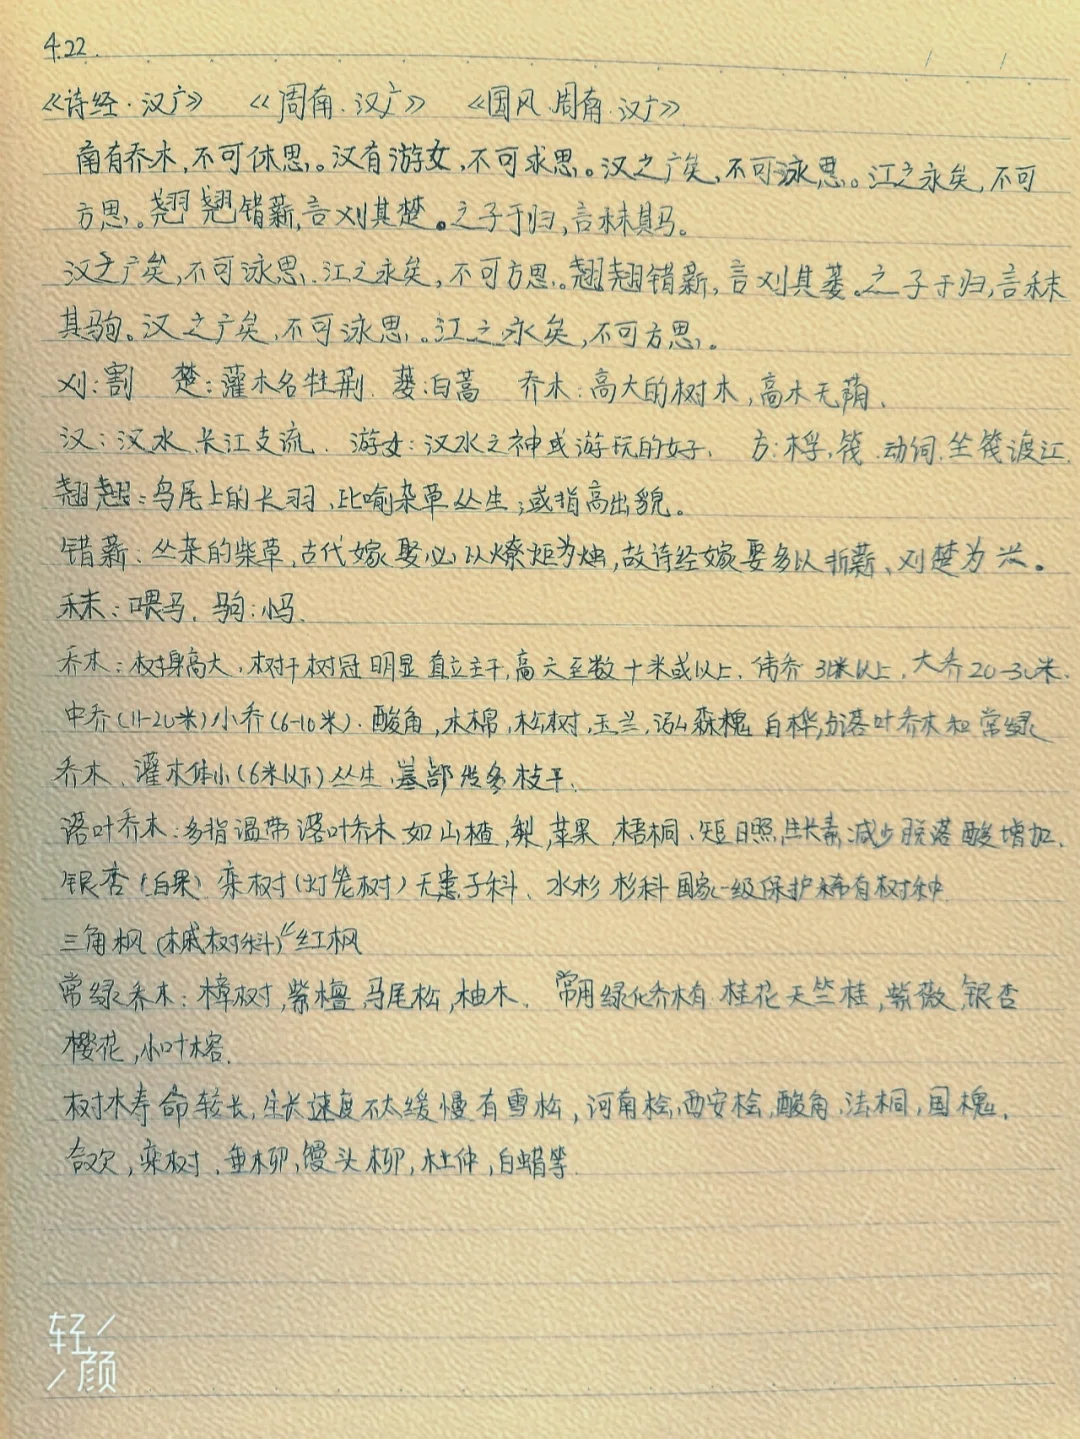 4.22.
《诗经·汉广》 《周南·汉广》 《国风·周南·汉广》
南有乔木,不可休思。汉有游女,不可求思。汉之广矣,不可泳思。江之永矣,不可
方思。翘翘错薪,言刈其楚。之子于归,言秣其马。
汉之广矣,不可泳思.江之永矣,不可方思。翘翘错薪,言刈其蒌。之子于归,言秣
其驹。汉之广矣,不可泳思。江之永矣,不可方思。
刈:割 楚:灌木名牡荆. 蒌:白蒿 乔木:高大的树木,高木无荫、
汉:汉水,长江支流. 游女:汉水之神或游玩的女子、 方:桴,筏.动词.坐筏渡江.
翘翘:鸟尾上的长羽,比喻杂草丛生;或指高出貌。
错薪:丛杂的柴草,古代嫁娶必以燎炬为烛,故诗经嫁娶多以折薪、刈楚为兴。
秣:喂马. 驹:小马.
乔木:树身高大,树干树冠明显直立主干,高六至数十米或以上. 伟乔 31米以上, 大乔20-30米.
中乔(11-20米)小乔(6-10米). 酸角,木棉,松树,玉兰, 森槐 白桦,分落叶乔木和常绿
乔木、灌木体小(6米以下)丛生,基部发多枝干.
落叶乔木:多指温带落叶乔木 如山楂,梨,苹果 梧桐、短日照,生长素减少脱落酸增加.
银杏(白果) 栾树(灯笼树)无患子科、水杉 杉科国家一级保护稀有树种
三角枫(槭树科)红枫
常绿乔木:樟树,紫檀,马尾松,柚木. 常用绿化乔木有 桂花 天竺桂,紫薇,银杏
樱花,小叶榕.
树木寿命较长,生长速度不太缓慢有雪松,河南桧,西安桧,酸角,法桐,国槐.
合欢,栾树,垂柳,馒头柳,杜仲,白蜡等.
轻颜